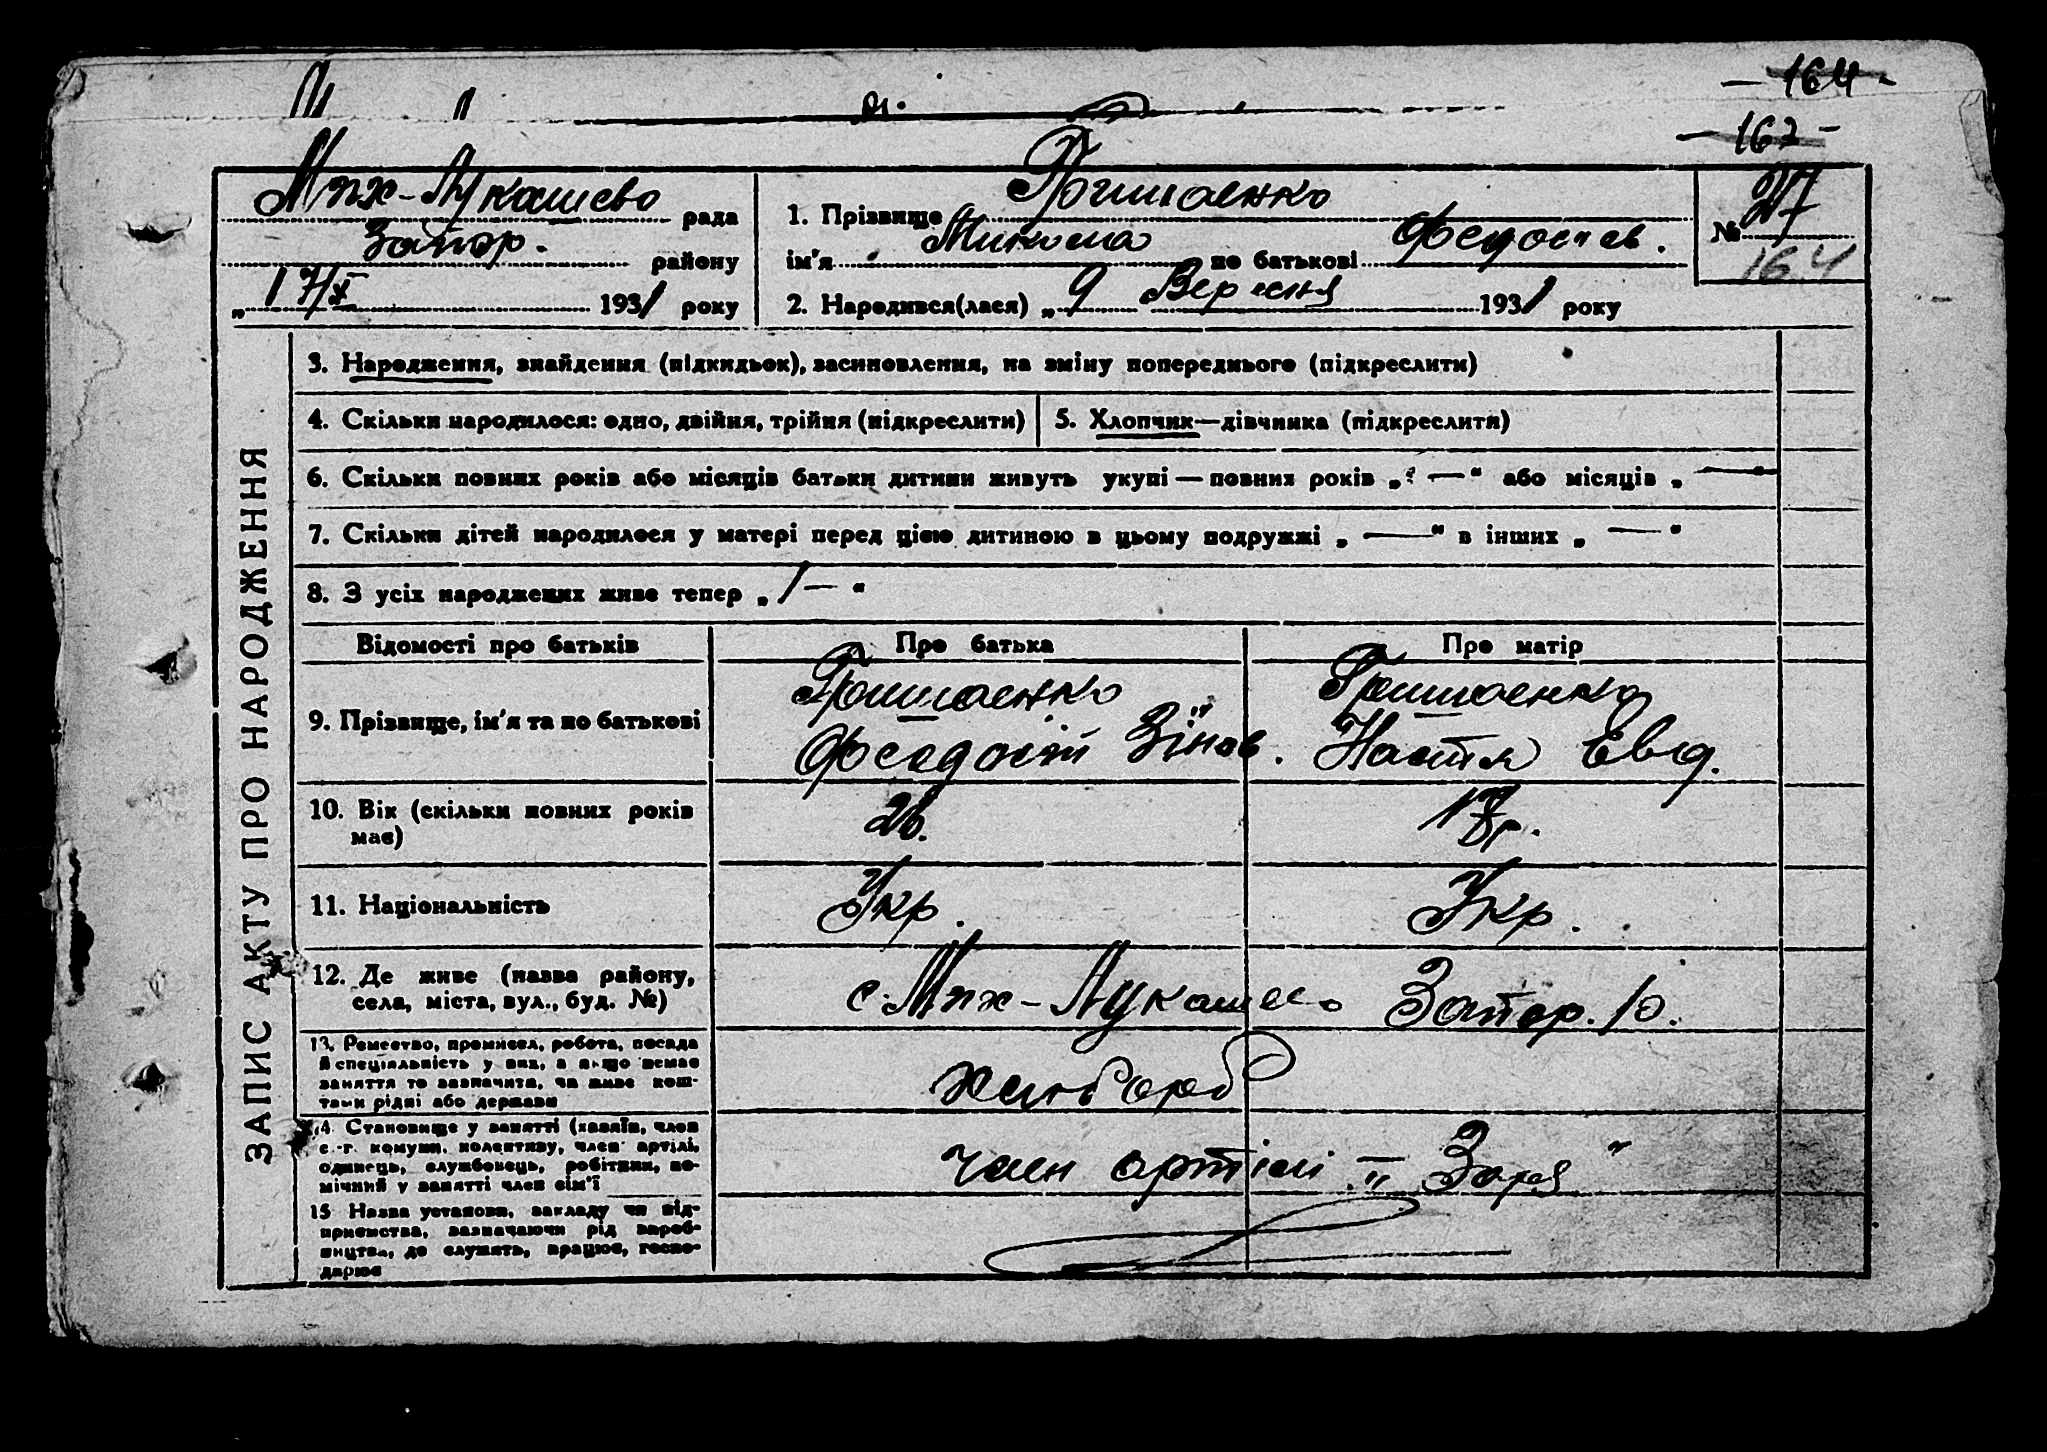 - 164 -
- 167 -
Мих-Лукашево рада
Запор. району
„ 17/X 1931 року
1. Прізвище Гришаенко
ім'я Микола по батькові Федосіев.
2. Народився(лася) „ 9 Вересня 1931 року
№ 27
164
ЗАПИС АКТУ ПРО НАРОДЖЕННЯ
3. Народження, знайдення (підкидьок), засиновлення, на зміну попереднього (підкреслити)
4. Скільки народилося: одно, двійня, трійня (підкреслити)
5. Хлопчик—дівчинка (підкреслити)
6. Скільки повних років або місяців батьки дитини живуть укупі — повних років „ — “ або місяців „ — “
7. Скільки дітей народилося у матері перед цією дитиною в цьому подружжі „ — “ в інших „ — “
8. З усіх народжених живе тепер „ 1 — “
Відомості про батьків Про батька Про матір
9. Прізвище, ім'я та по батькові
Гришаенко
Феодосій Зінов.
Гришаенко
Настя Евд.
10. Вік (скільки повних років має)
26.
11. Національність
Укр.
Укр.
12. Де живе (назва району,
села, міста, вул., буд. №)
с Мих-Лукашево Запор. р.
13. Ремество, промисел, робота, посада
й спеціяльність у них, а якщо немає
заняття то зазначити, чи живе кош-
тами рідні або держави
хлибороб
14. Становище у занятті (хазяїн, член
с.-г. комуни, колективу, член артілі,
одинець, службовець, робітник, по-
мічний у занятті член сім'ї
член артілі „Заря“
15 Назва установи, закладу чи під-
приємства, зазначаючи рід вироб-
ництва, де служить, працює, госпо-
дарює